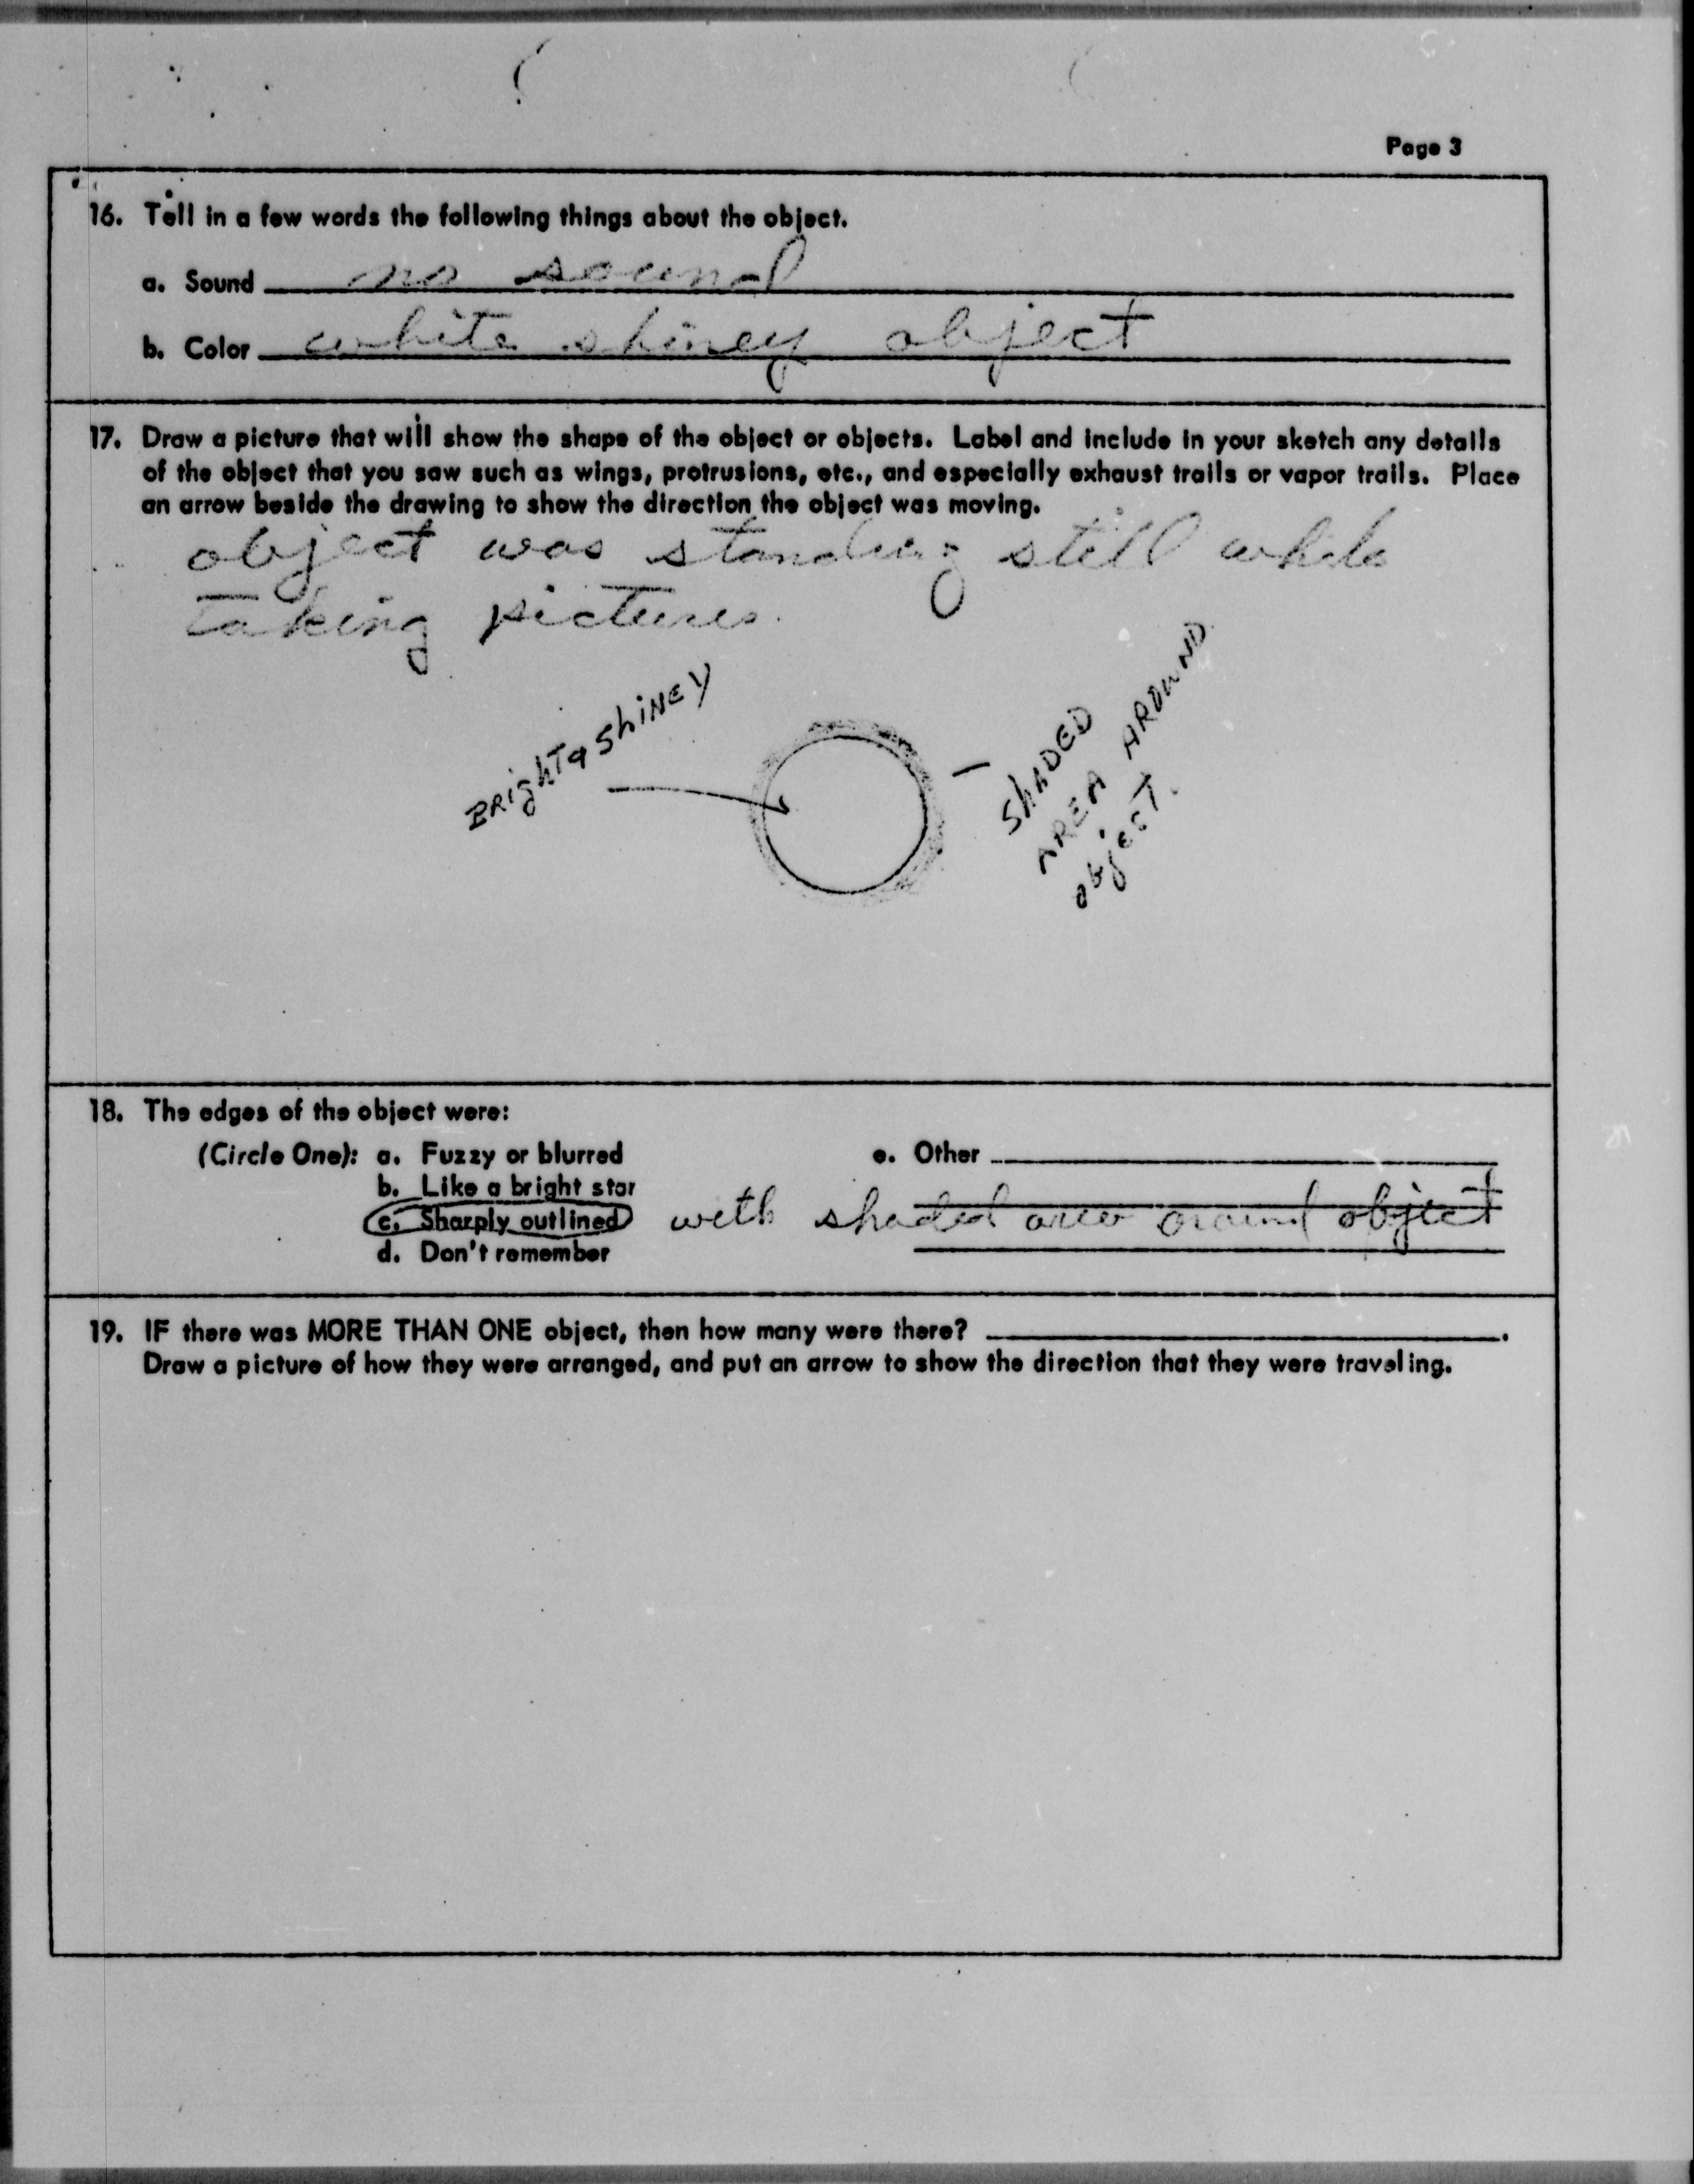 Page 3
16. Tell in a few words the following things about the object.
a. Sound no sound
b. Color white shiney object
17. Draw a picture that will show the shape of the object or objects. Label and include in your sketch any details
of the object that you saw such as wings, protrusions, etc., and especially exhaust trails or vapor trails. Place
an arrow beside the drawing to show the direction the object was moving.
object was standing still while
taking pictures.
BRight & ShiNEY
ShADED
AREA AROUND
object.
18. The edges of the object were:
(Circle One): a. Fuzzy or blurred
b. Like a bright star
c. Sharply outlined with shaded area around object
d. Don't remember
e. Other
19. IF there was MORE THAN ONE object, then how many were there?
Draw a picture of how they were arranged, and put an arrow to show the direction that they were traveling.